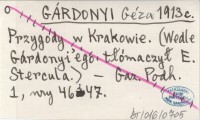 GÁRDONYI Géza 1913 c.
Przygody w Krakowie. (Wedle
Gárdonyi'ego tłómaczył E.
Stercula.) — Gaz. Podh.
1, nry 46 47.
br/016/0705